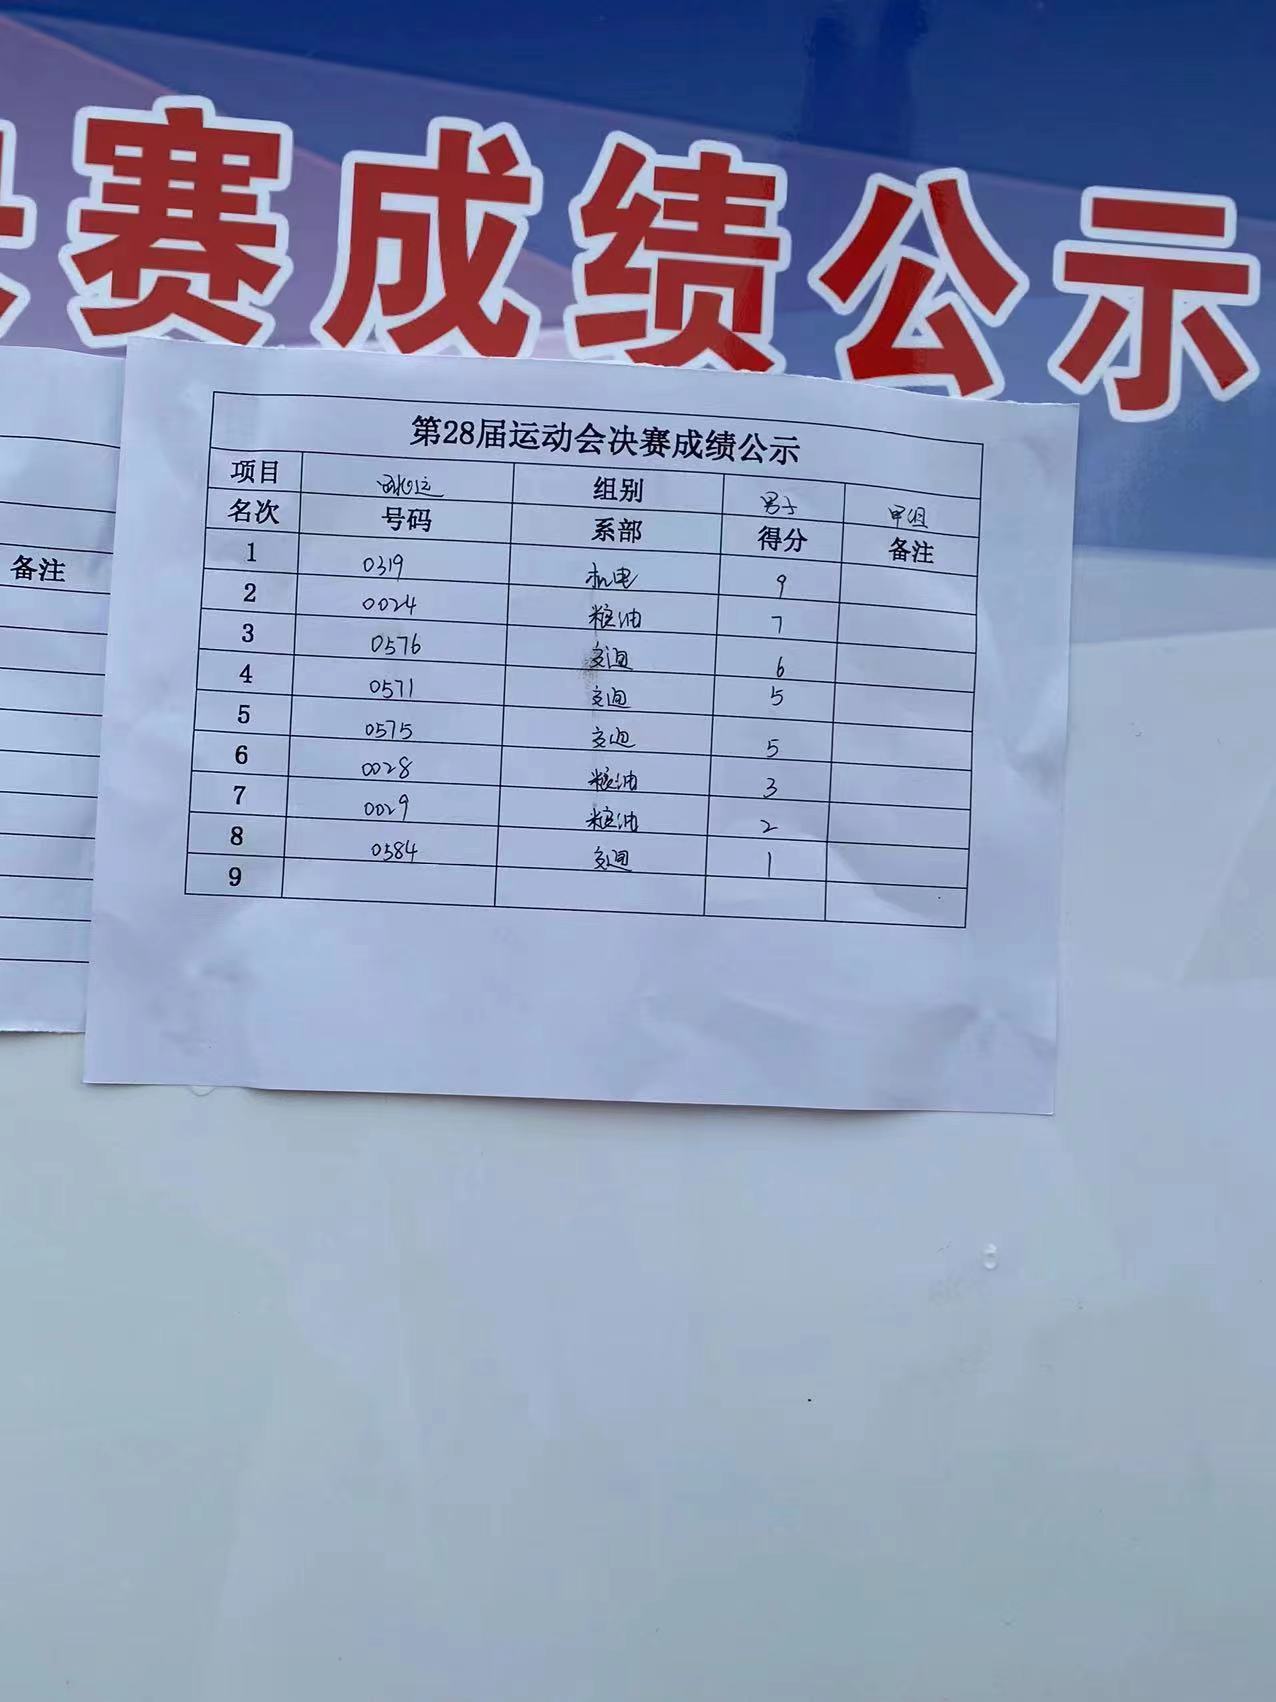 赛成绩公示
备注
第28届运动会决赛成绩公示
项目 组别 男子 甲组
名次 号码 系部 得分 备注
1 0319 机电 9
2 0024 粮油 7
3 0576 交通 6
4 0571 交通 5
5 0575 交通 5
6 0028 粮油 3
7 0029 粮油 2
8 0584 交通 1
9